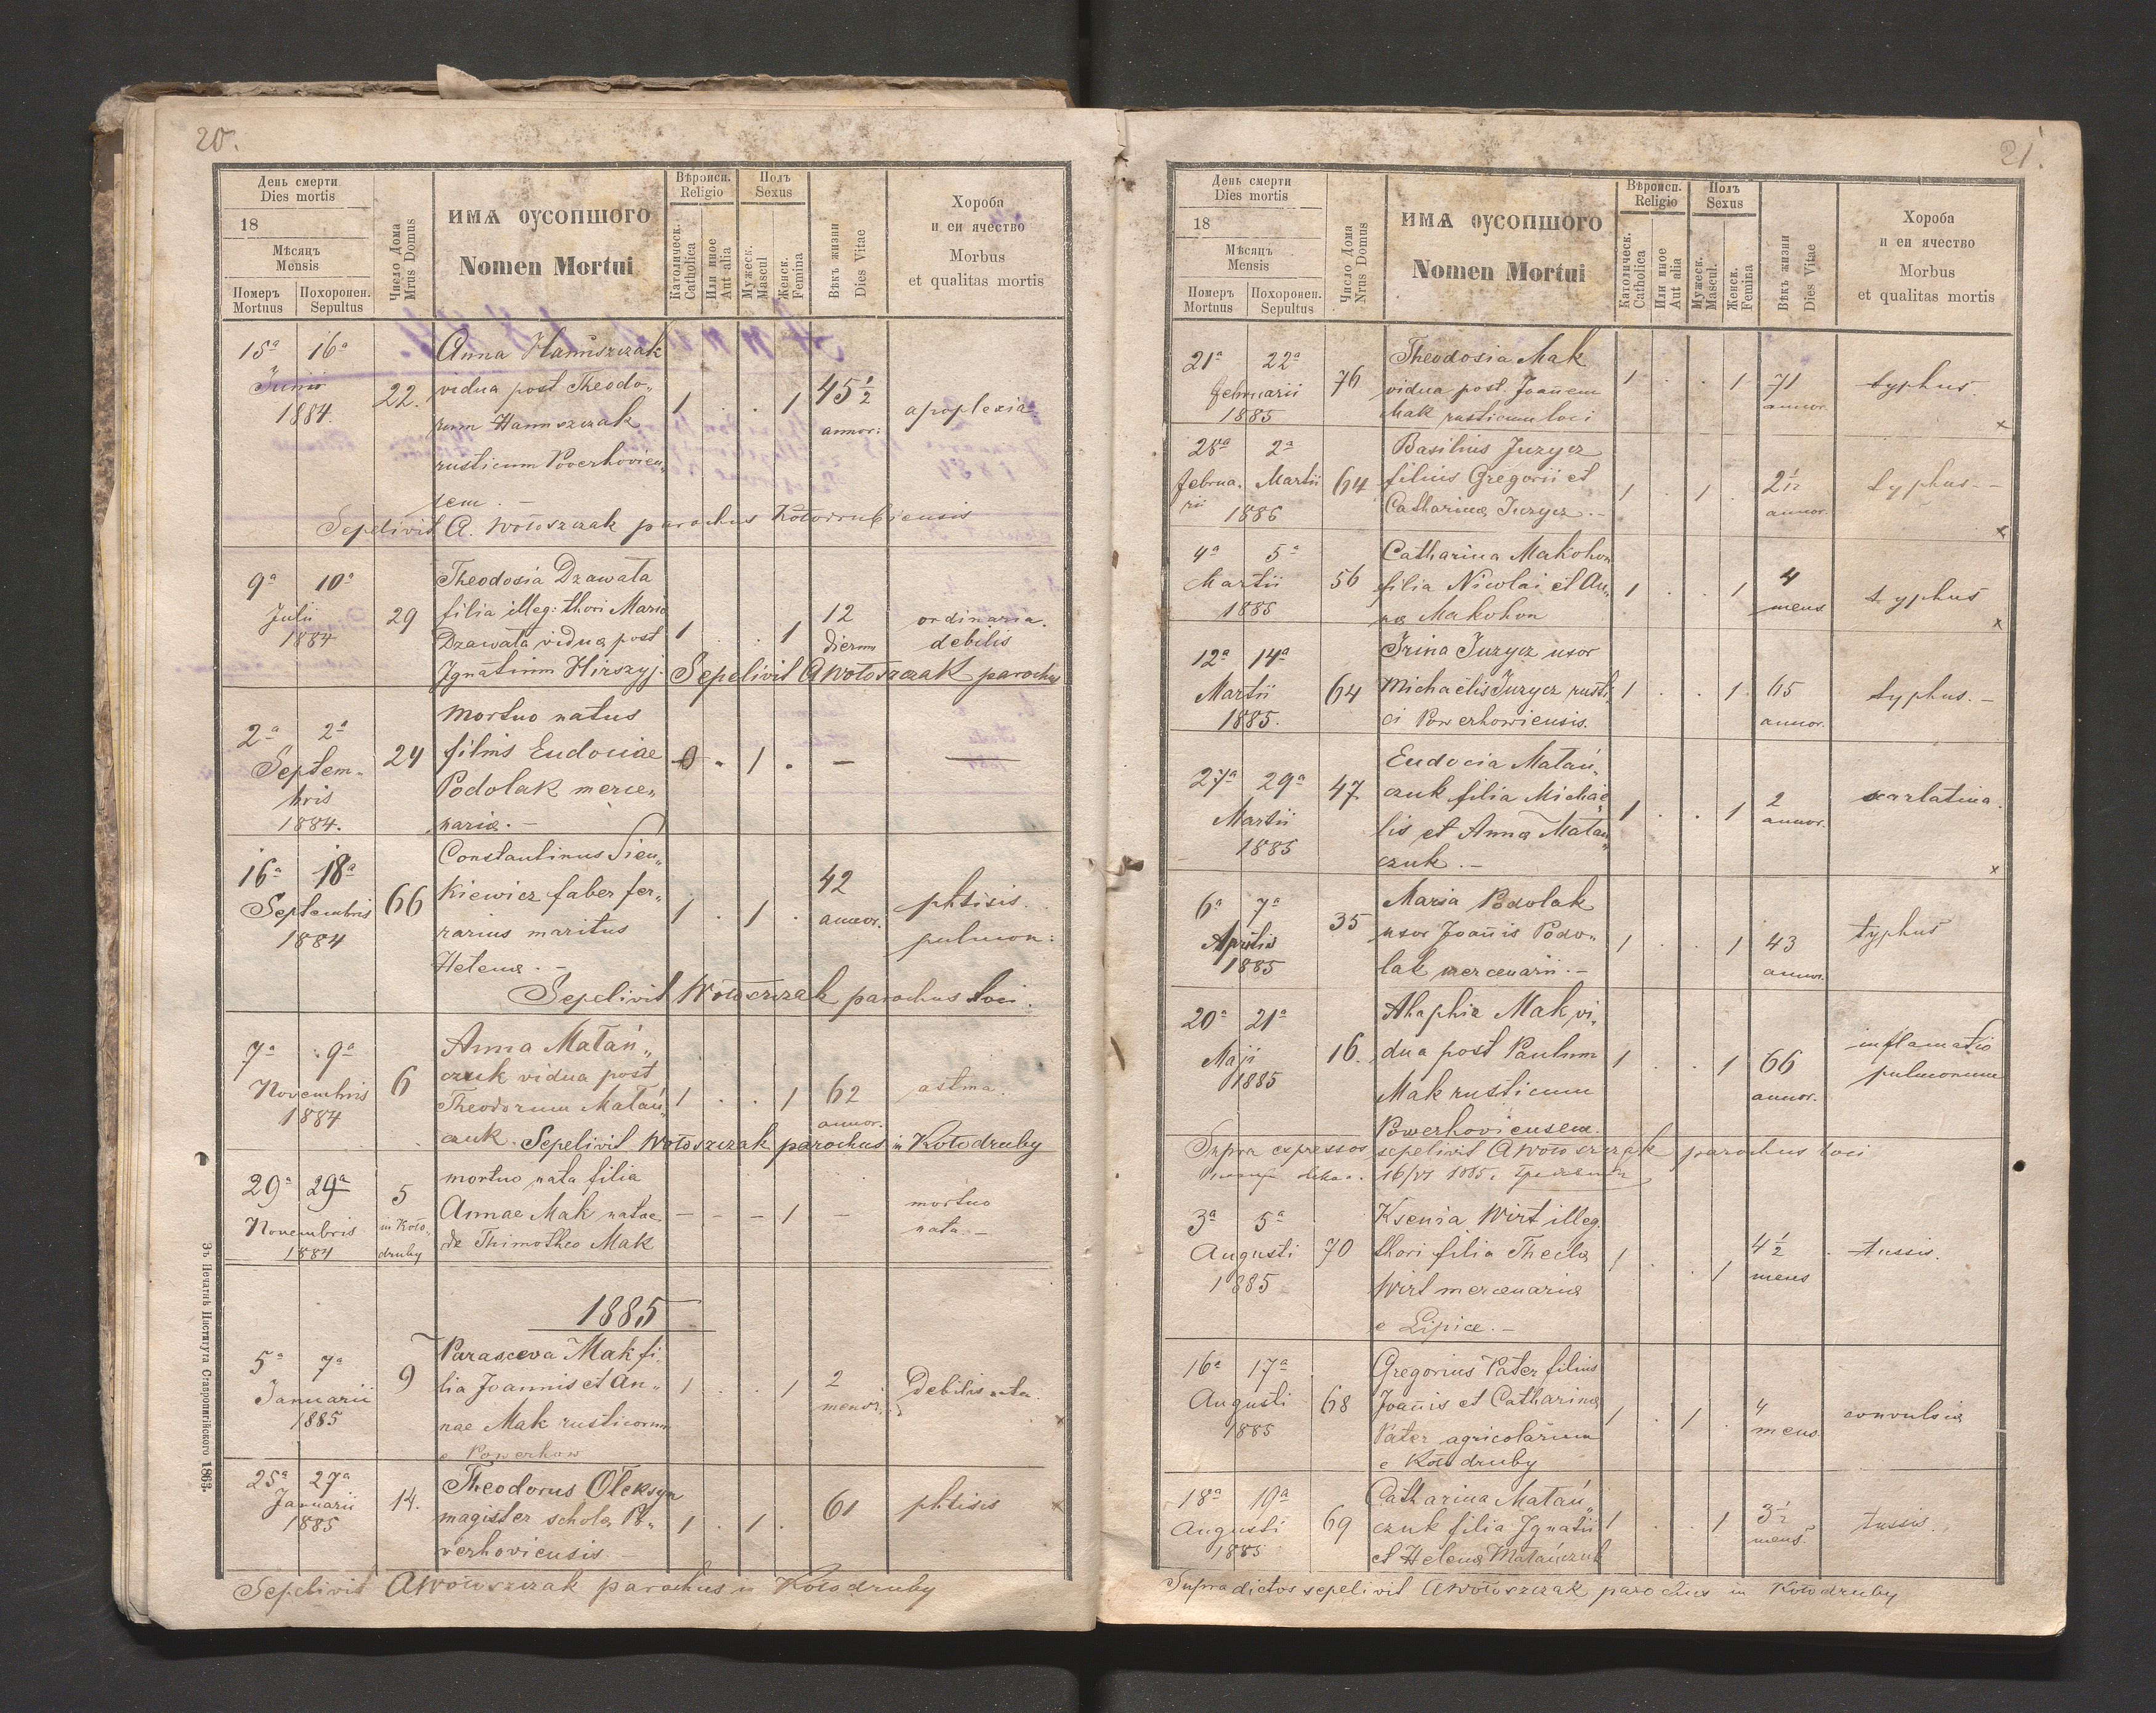 20.
День смерти
Dies mortis
18
Мѣсяцъ
Mensis
Померъ
Mortuus
Похоронен.
Sepultus
Число Дома
Mrus Domus
ИМѦ ОУСОПШОГО
Nomen Mortui
Вѣроисп.
Religio
Католическ.
Catholica
Или иное
Aut alia
Полъ
Sexus
Мужеск.
Mascul
Женск.
Femina
Вѣкъ жизни
Dies Vitae
Хороба
и еи ячество
Morbus
et qualitas mortis
15ª 16ª
Junii
1884.
22.
Anna Hamszczak
vidua post Theodo„
rum Hamszczak
rusticum Poverhovien„
sem –
1 . . 1
45 ½
annor:
apoplexia.
Sepelivit A. Wołoszczak parochus Kołodrubiensis
9ª 10ª
Julii
1884
29
Theodosia Dzawała
filia illeg: thori Maria
Dzawała vidua post
Ignatium Hirszyj.
1 . . 1
12
dierum
ordinaria.
debilis
Sepelivit AWołoszczak parochus
2ª 2ª
Septem„
bris
1884.
24
Mortuo natus
filius Eudociae
Podolak merce„
naria. –
0 . 1 . –
16ª 18ª
Septembris
1884
66
Constantinus Sien„
kiewicz faber fer„
rarius maritus
Helena. –
1 . 1 .
42
annor.
phtisis.
pulmon:
Sepelivit Wołoszczak parochus loci.
7ª 9ª
Novembris
1884
6
Anna Matań„
czuk vidua post
Theodorum Matań„
czuk.
1 . . 1
62
annor.
astma.
Sepelivit Wołoszczak parochus in Kołodruby
29ª 29ª
Novembris
1884
5
in Koło„
druby
mortuo nata filia
Annae Mak natae
de Thimotheo Mak
– – – 1 –
mortuo
nata. –
1885
5ª 7ª
Januarii
1885
9
Parasceva Mak fi„
lia Joannis et An„
nae Mak rusticorum
e Powerhow
1 . . 1
2
mens.
Debilis nata.
x
25ª 27ª
Januarii
1885
14.
Theodorus Oleksyn
magister schola Po„
verhoviensis –
1 . 1 .
61
phtisis
x
Sepelivit AWołoszczak parochus in Kołodruby
Зъ Печатнѣ Института Ставропигійского 1863.
21.
День смерти
Dies mortis
18
Мѣсяцъ
Mensis
Померъ
Mortuus
Похоронен.
Sepultus
Число Дома
Nrus Domus
ИМѦ ОУСОПШОГО
Nomen Mortui
Вѣроисп.
Religio
Католическ.
Catholica
Или иное
Aut alia
Полъ
Sexus
Мужеск.
Mascul.
Женск.
Femina
Вѣкъ жизни
Dies Vitae
Хороба
и еи ячество
Morbus
et qualitas mortis
21ª 22ª
februarii
1885
76
Theodosia Mak
vidua post Joañem
Mak rusticum loci
1 . . 1
71
annor.
typhus.
x
28ª 2ª
februa. Martii
rii
1885
64
Basilius Juzycz
filius Gregorii et
Catharina Juzycz. –
1 . 1 .
2 1/12
annor.
typhus. –
x
4ª 5ª
Martii
1885
56
Catharina Makohon
filia Nicolai et An„
na Makohon
1 . . 1
4
mens
typhus
x
12ª 14ª
Martii
1885.
64
Irina Juzycz uxor
Michaëlis Juzycz rusti„
ci Powerhowiensis.
1 . . 1
65
annor.
typhus. –
27ª 29ª
Martii
1885
47
Eudocia Matań„
czuk filia Michaë„
lis et Anna Matań„
czuk. –
1 . . 1
2
annor.
scarlatina.
x
6ª 7ª
Aprilis
1885
35
Maria Podolak
uxor Joañis Podo„
lak mercenarii. –
1 . . 1
43
annor.
typhus
20ª 21ª
Maji
1885
16.
Ahaphia Mak vi„
dua post Paulum
Mak rusticum
Powerhoviensem.
1 . . 1
66
annor.
inflamatio
pulmonum
Supra expressos sepelivit AWołoszczak parochus loci
16/VI 1885.
3ª 5ª
Augusti
1885
70
Ksenia Wirt illeg.
thori filia Thecla
Wirt mercenaria
e Lipice. –
1 . . 1
4 ½
mens
tussis.
16ª 17ª
Augusti
1885
68
Gregorius Pater filius
Joañis et Catharina
Pater agricolarum
e Kołodruby
1 . 1 .
4
mens.
convulsia
18ª 19ª
Augusti
1885
69
Catharina Matań„
czuk filia Ignatii
et Helena Matańczuk
1 . . 1
3 ½
mens.
tussis.
Supradictos sepelivit AWołoszczak parochus in Kołodruby